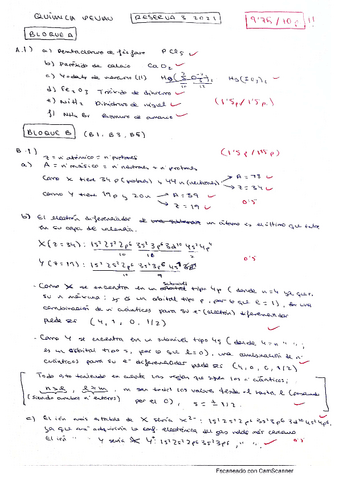 QUÍMICA PEVAU RESERVA 3 2021 9'75/10p !!
BLOQUE A
A.1) a) Pentacloruro de fósforo PCl5
b) Peróxido de calcio CaO2
c) Yodato de mercurio (II) Hg(IO3)2
d) Fe2O3 Trióxido de dihierro
e) NiH2 Dihidruro de níquel (1'5p/1'5p)
f) NH4Br Bromuro de amonio
BLOQUE B (B1, B3, B5)
B.1) (1'5p/1'5p)
Z = nº atómico = nº protones
a) A = nº másico = nº neutrones + nº protones
Como X tiene 34 p (protones) y 44 n (neutrones) A = 78
Z = 34
Como Y tiene 19p y 20n A = 39
Z = 19 0'5
b) El electrón diferenciador de un átomo es el último que entra
en su capa de valencia.
X (Z = 34): 1s² 2s² 2p⁶ 3s² 3p⁶ 3d¹⁰ 4s² 4p⁴
Y (Z = 19): 1s² 2s² 2p⁶ 3s² 3p⁶ 4s¹ 0'5
- Como X se encuentra en un subnivel tipo 4p (donde n=4 ya que
su n máximo; y es un orbital tipo p, por lo que l = 1), una
combinación de nº cuánticos para su e⁻ (electrón) diferenciador
puede ser (4, 1, 0, 1/2)
- Como Y se encuentra en un subnivel tipo 4s (donde 4 = n
es un orbital tipo s, por lo que l=0), una combinación de nº
cuánticos para su e⁻ diferenciador puede ser (4, 0, 0, 1/2)
Todo esto teniendo en cuenta las reglas que siguen los nº cuánticos:
por el 0), s = ± 1/2.
c) El ión más estable de X sería X²⁻: 1s² 2s² 2p⁶ 3s² 3p⁶ 3d¹⁰ 4s² 4p⁶,
ya que así adquiriría la conf. electrónica del gas noble más cercano
El ión " " Y sería Y⁺: 1s² 2s² 2p⁶ 3s² 3p⁶, " "
0'5
Escaneado con CamScanner